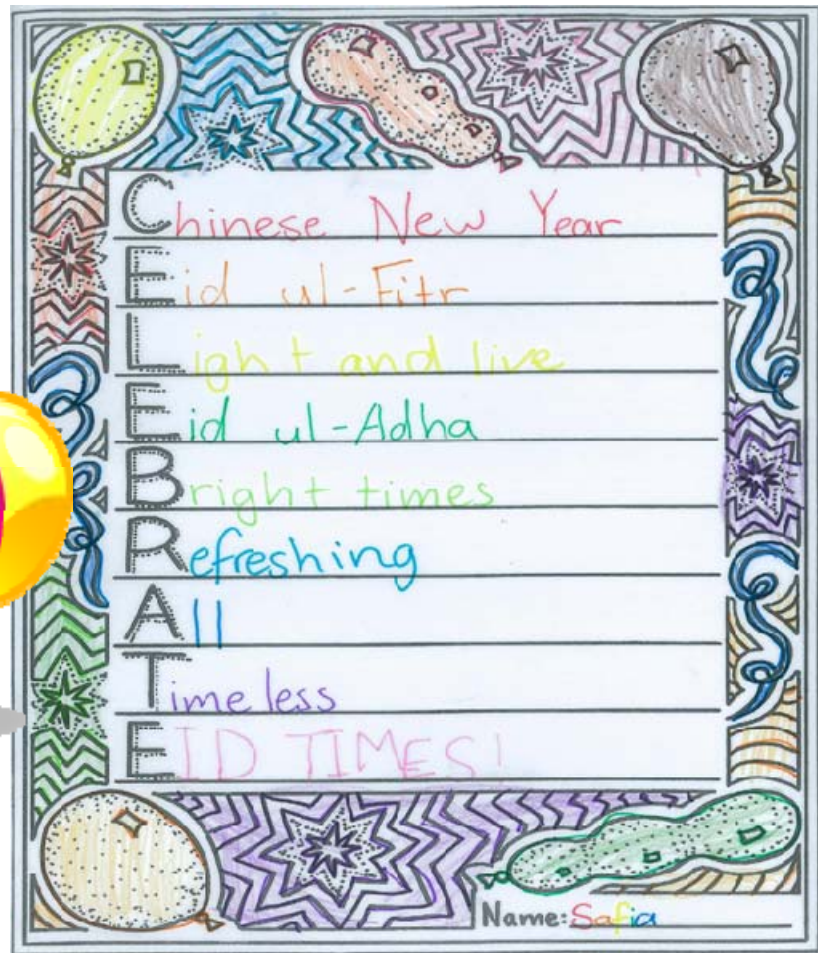 Chinese New Year
Eid ul-Fitr
Light and live
Eid ul-Adha
Bright times
Refreshing
All
Timeless
EID TIMES!
Name: Safia